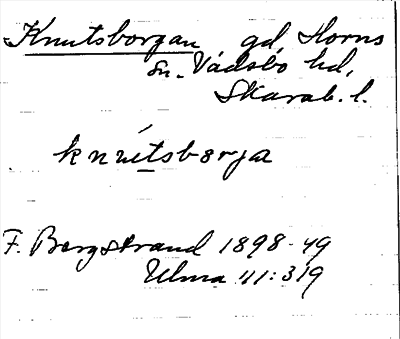 Knutsborgan gd, Horns
sn. Vadsbo hd,
Skarab. l.
knutsborga
F. Bergstrand 1898-49
Ulma 111:319